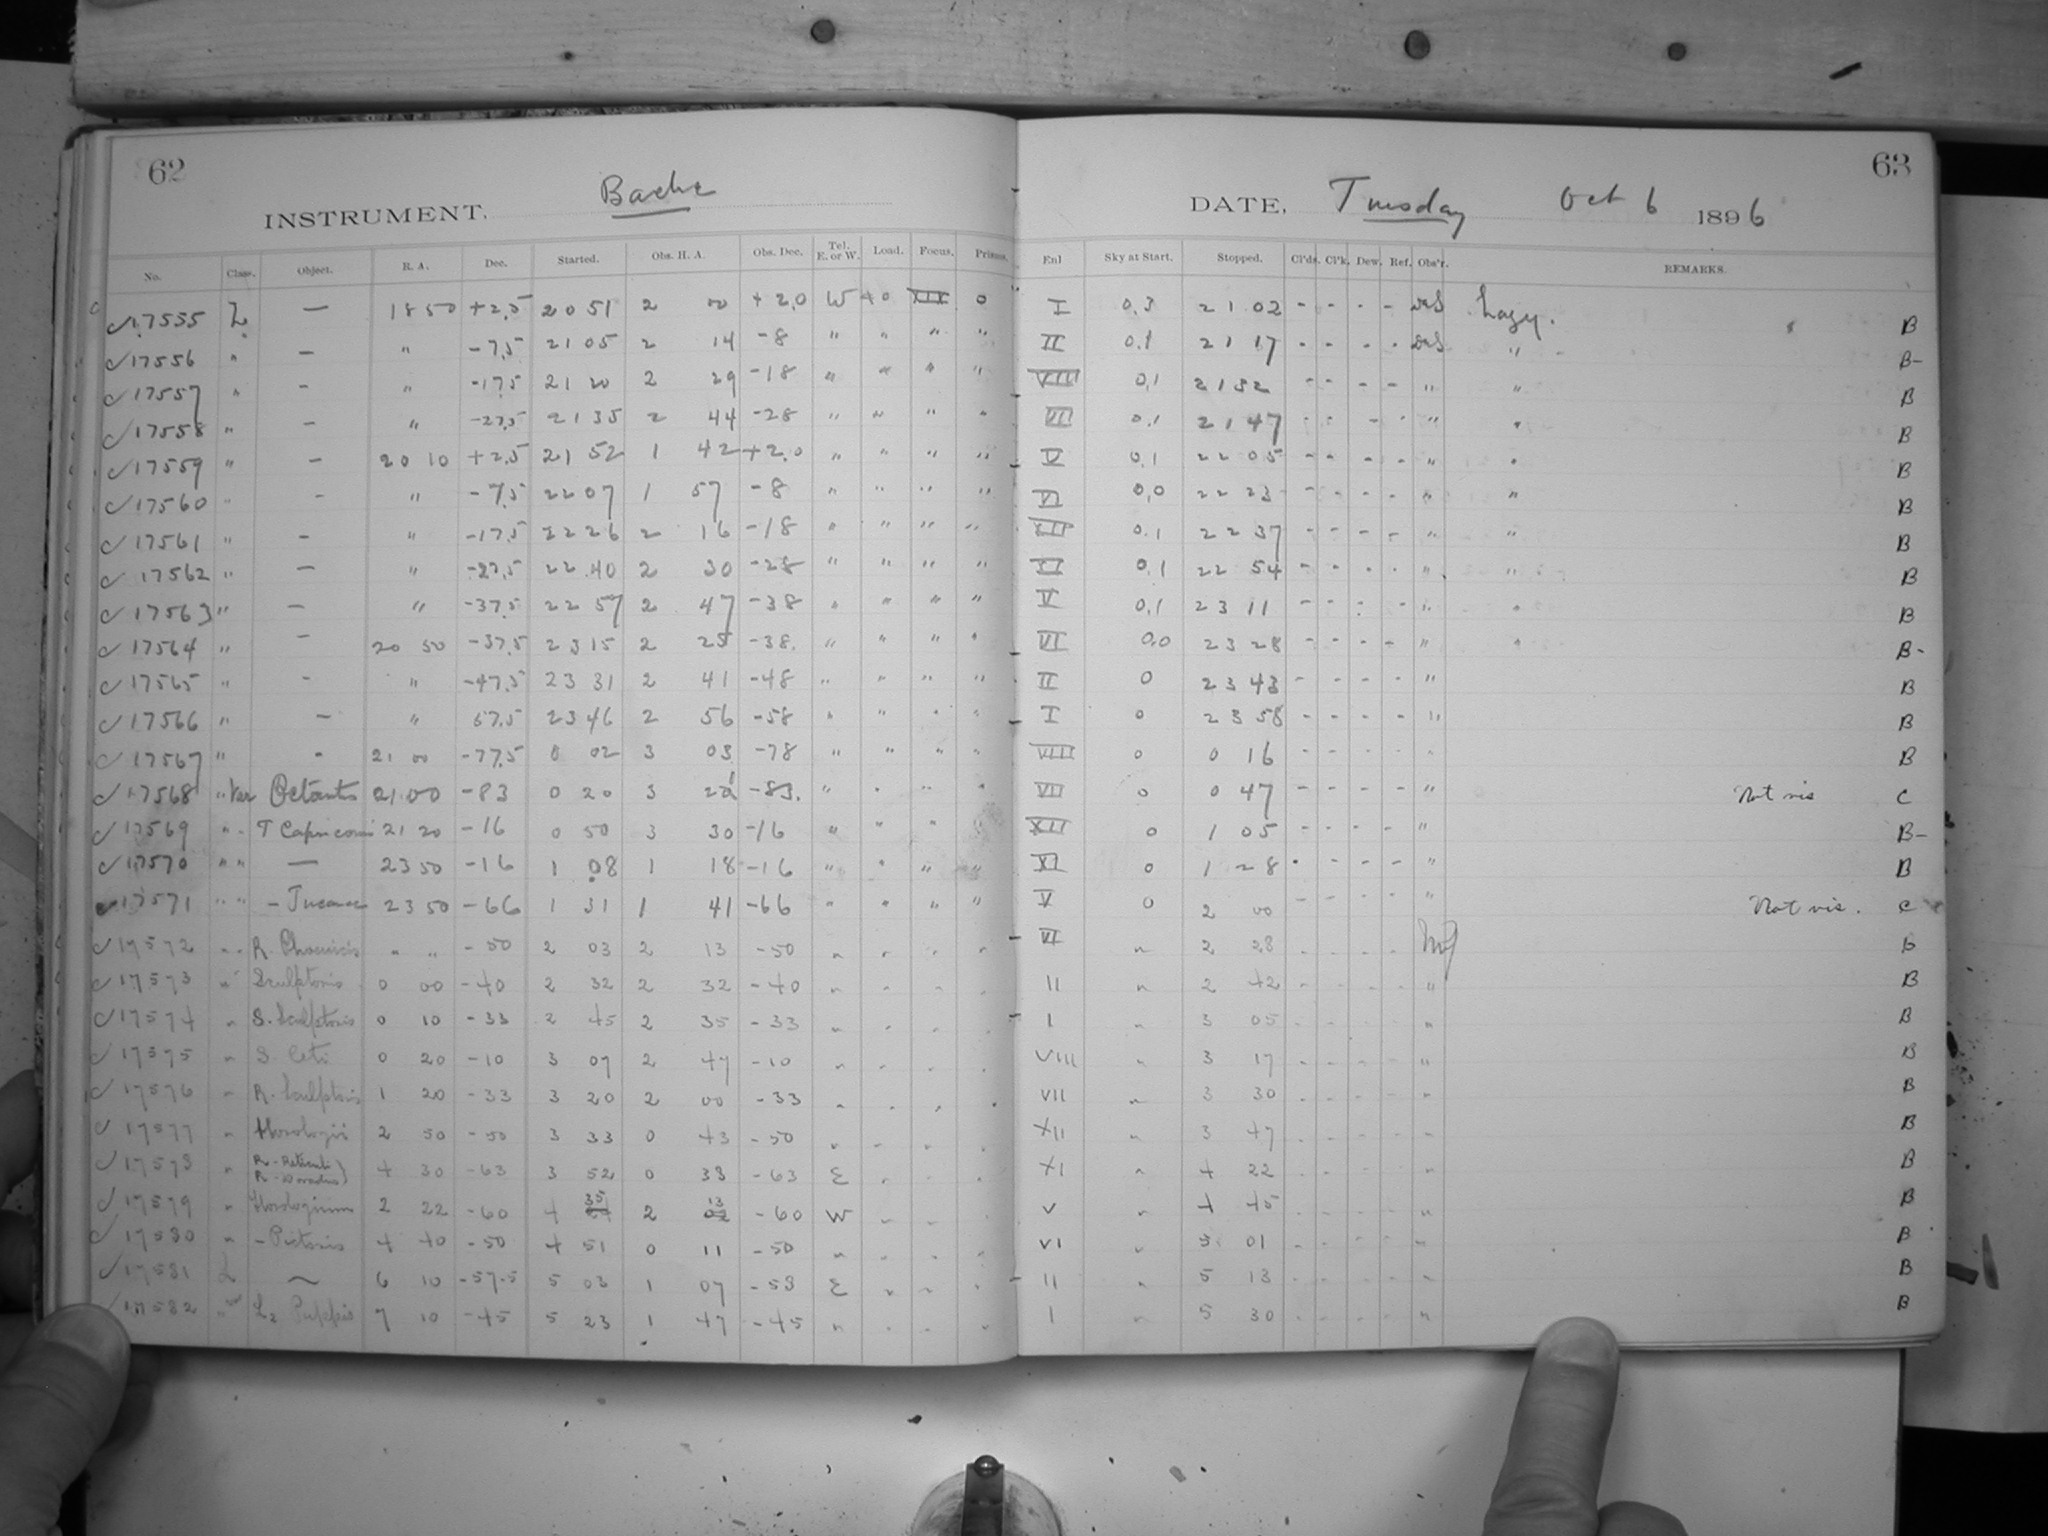 62
INSTRUMENT. Bache
No. Class. Object. R. A. Dec. Started. Obs. H. A. Obs. Dec. Tel. E. or W. Load. Focus. Prisms.
✓17555 L — 18 50 +2.5 20 51 2 00 +2.0 W 40 XIX 0
✓17556 " — " -7.5 21 05 2 14 -8 " " " "
✓17557 " — " -17.5 21 20 2 29 -18 " " " "
✓17558 " — " -27.5 21 35 2 44 -28 " " " "
✓17559 " — 20 10 +2.5 21 52 1 42 +2.0 " " " "
✓17560 " — " -7.5 22 07 1 57 -8 " " " "
✓17561 " — " -17.5 22 26 2 16 -18 " " " "
✓17562 " — " -27.5 22 40 2 30 -28 " " " "
✓17563 " — " -37.5 22 57 2 47 -38 " " " "
✓17564 " — 20 50 -37.5 23 15 2 25 -38. " " " "
✓17565 " — " -47.5 23 31 2 41 -48 " " " "
✓17566 " — " 57.5 23 46 2 56 -58 " " " "
✓17567 " - 21 00 -77.5 0 02 3 03 -78 " " " "
✓17568 " Var Octantis 21.00 -83 0 20 3 -83. " " " "
✓17569 " " T Capricorni 21 20 -16 0 50 3 30 -16 " " " "
✓17570 " " — 23 50 -16 1 08 1 18 -16 " " " "
✓17571 " " - Tucanae 23 50 -66 1 31 1 41 -66 " " " "
✓17572 " " R. Phoenicis " " -50 2 03 2 13 -50 " " " "
✓17573 " Sculptoris 0 00 -40 2 32 2 32 -40 " " " "
✓17574 " S. Sculptoris 0 10 -33 2 45 2 35 -33 " " " "
✓17575 " S. Ceti 0 20 -10 3 07 2 47 -10 " " " "
✓17576 " R. Sculptoris 1 20 -33 3 20 2 00 -33 " " " "
✓17577 " Horologii 2 50 -50 3 33 0 43 -50 " " " "
✓17578 " R - Reticuli } R - Doradus 4 30 -63 3 52 0 38 -63 E
✓17579 " Horologium 2 22 -60 4 35 2 13 -60 W " " "
✓17580 " - Pictoris 4 40 -50 4 51 0 11 -50 " " " "
✓17581 L ~ 6 10 -57.5 5 03 1 07 -58 E " " "
✓17582 " var L₂ Puppis 7 10 -45 5 23 1 47 -45 " " " "
63
DATE, Tuesday Oct 6 1896
Enl Sky at Start. Stopped. Cl'ds. Cl'k. Dew. Ref. Obs'r. REMARKS.
I 0.3 21 02 - - - - hazy. B
II 0.1 21 17 - - - - " B-
VIII 0.1 21 32 - - - - " " B
VII 0.1 21 47 - - - - " " B
V 0.1 22 05 - - - - " " B
VI 0.0 22 23 - - - - " " B
XII 0.1 22 37 - - - - " " B
XI 0.1 22 54 - - - - " " B
V 0.1 23 11 - - - - " " B
VI 0.0 23 28 - - - - " " B-
II 0 23 43 - - - - " B
I 0 23 58 - - - - " B
VIII 0 0 16 - - - - " B
VII 0 0 47 - - - - " Not vis C
XII 0 1 05 - - - - " B-
XI 0 1 28 - - - - " B
V 0 2 00 - - - - " Not vis. C
VI " 2 28 - - - - B
II " 2 42 - - - - " B
I " 3 05 - - - - " B
VIII " 3 17 - - - - " B
VII " 3 30 - - - - " B
XII " 3 47 - - - - " B
XI " 4 22 - - - - " B
V " 4 45 - - - - " B
VI " 5 01 - - - - " B
II " 5 13 - - - - " B
I " 5 30 - - - - " B